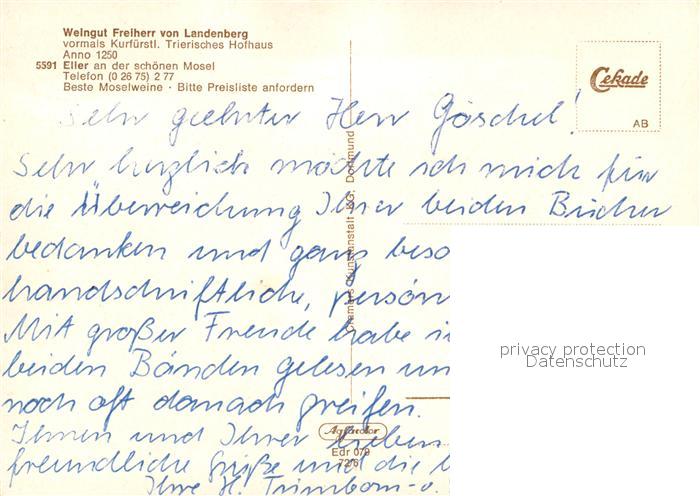 Weingut Freiherr von Landenberg
vormals Kurfürstl. Trierisches Hofhaus
Anno 1250
5591 Eller an der schönen Mosel
Telefon (0 26 75) 2 77
Beste Moselweine · Bitte Preisliste anfordern
Cekade
AB
Sehr geehrter Herr Göschel!
Sehr herzlich möchte ich mich für
die Überreichung Ihrer beiden Bücher
bedanken und ganz beso
handschriftliche, persön
Mit großer Freude habe i
beiden Bänden gelesen un
noch oft danach greifen.
Ihnen und Ihrer lieben
freundliche Grüße und die b
Ihre H.
Cramers Kunstanstalt KG, Dortmund
privacy protection
Datenschutz
Agfacolor
Edr 079
72/6